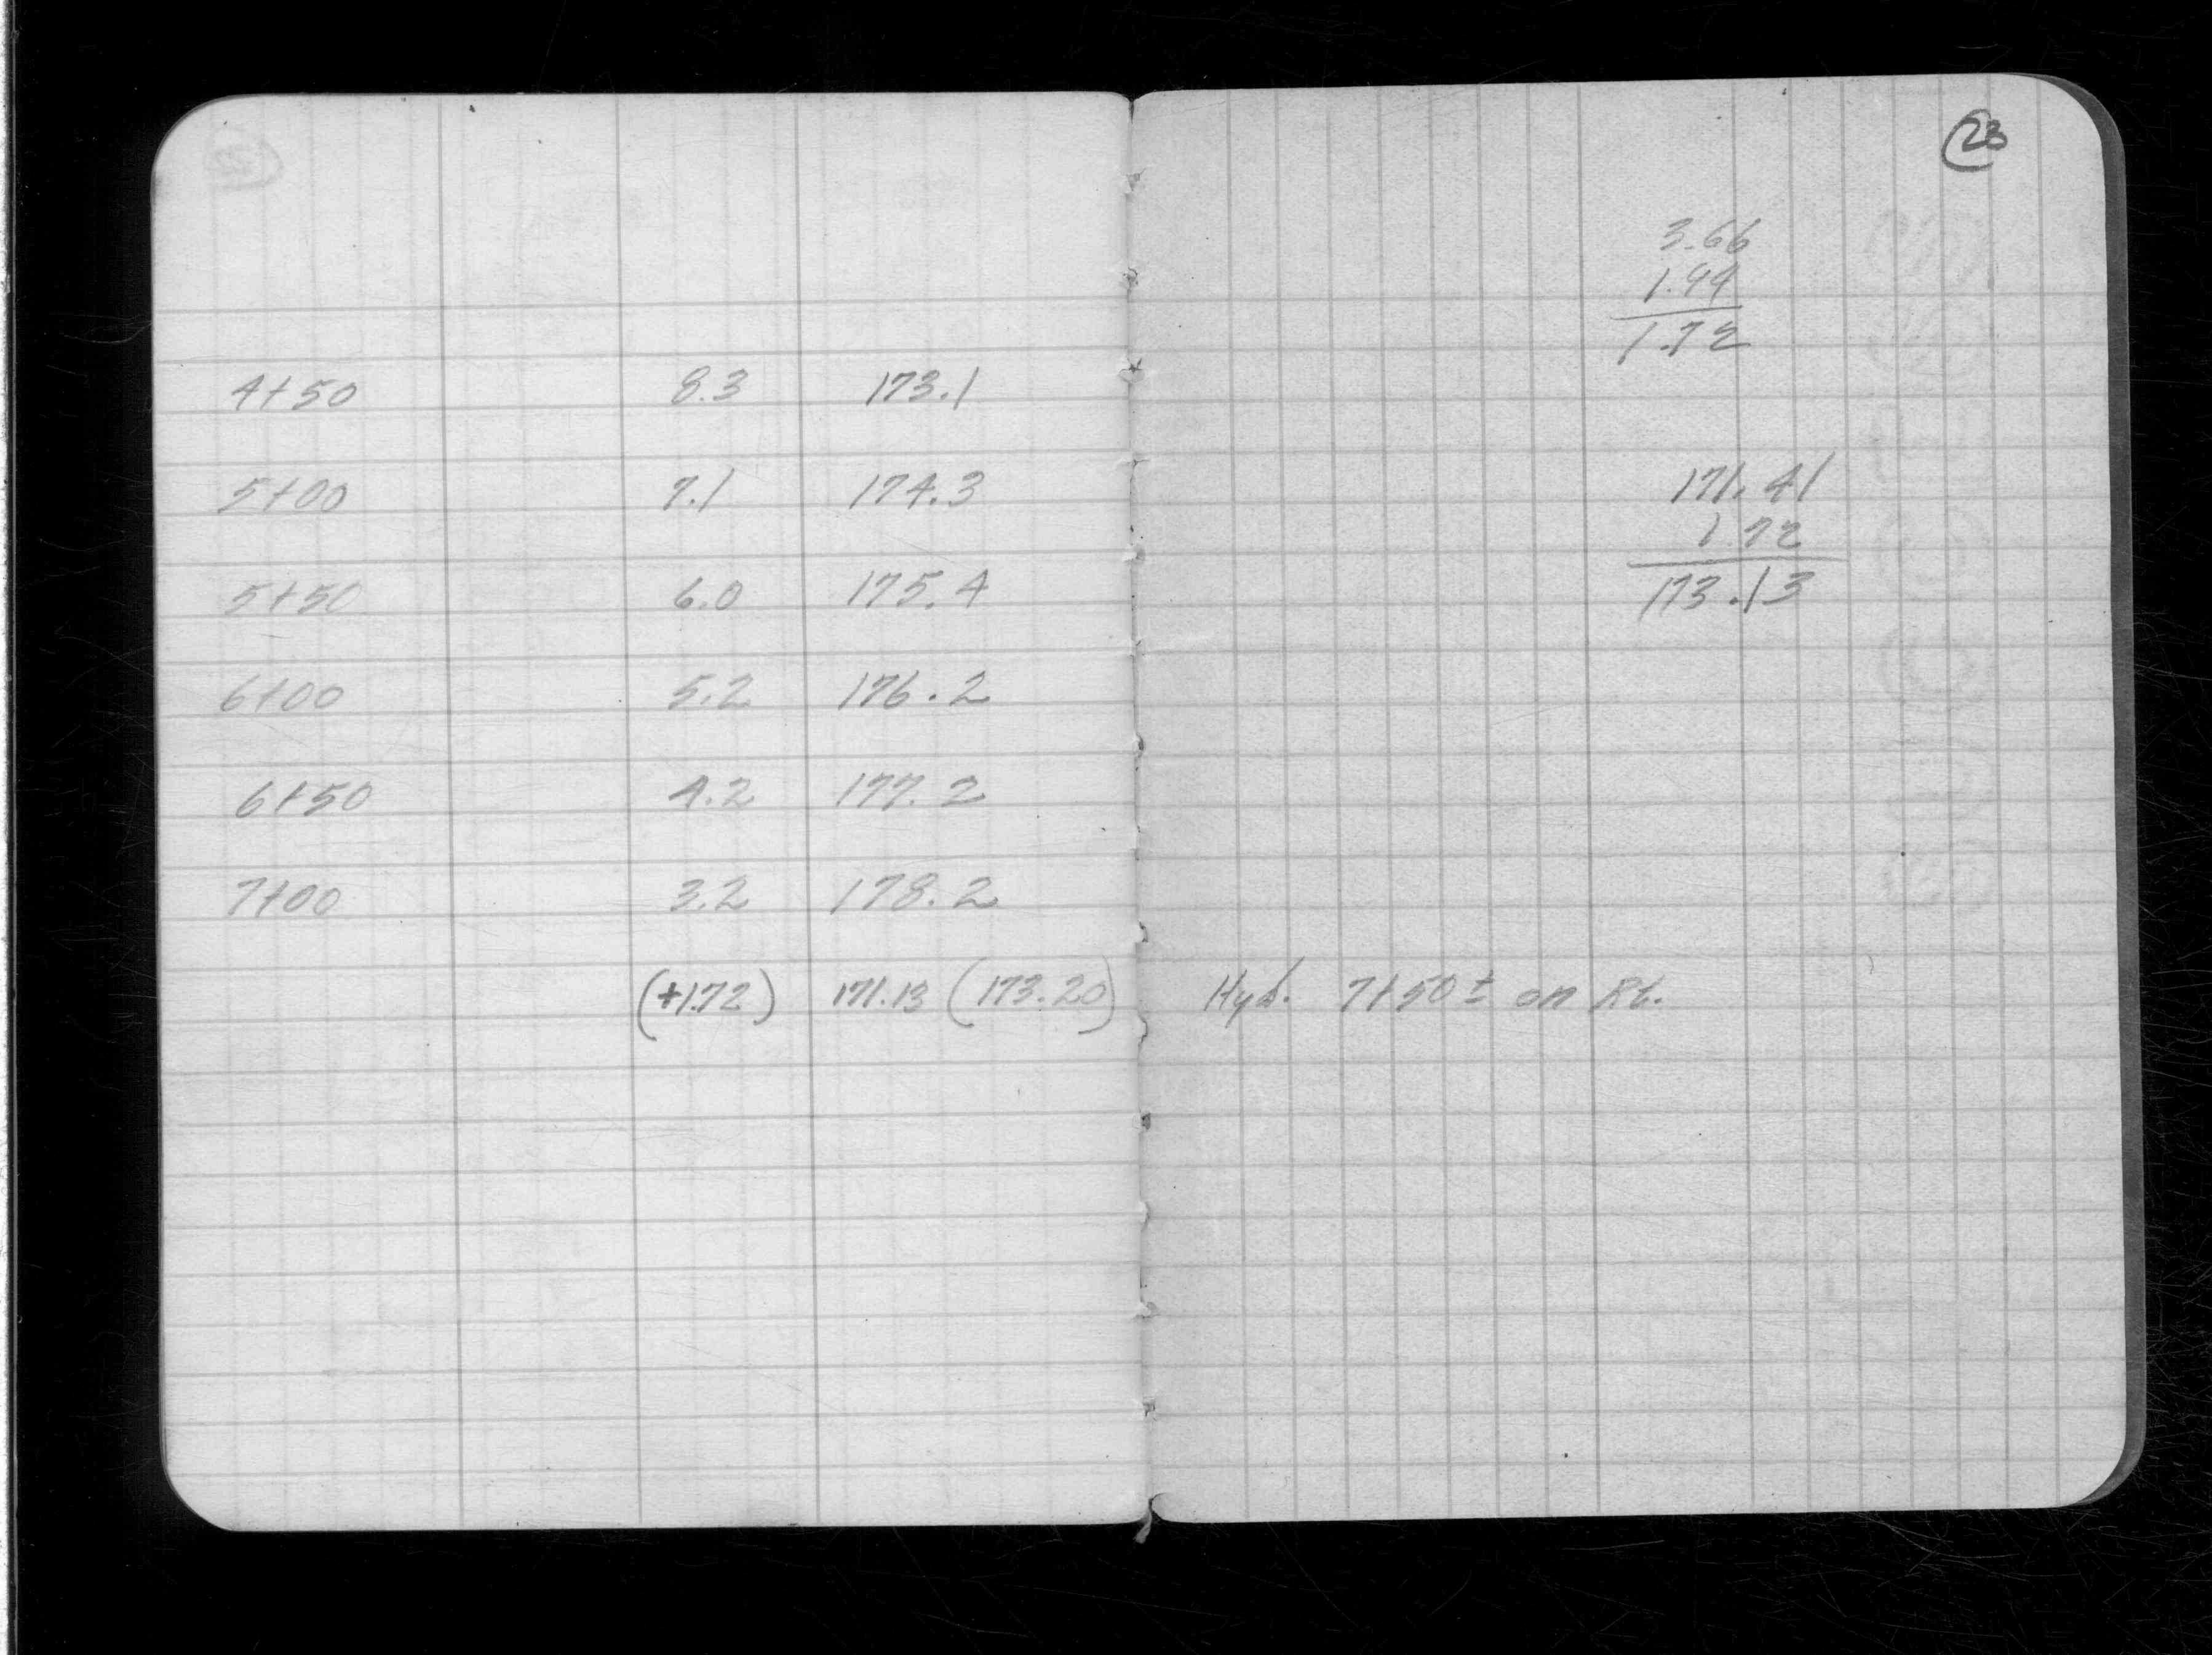 4+50 8.3 173.1
5+00 7.1 174.3
5+50 6.0 175.4
6+00 5.2 176.2
6+50 4.2 177.2
7+00 3.2 178.2
(+1.72) 171.13 (173.20)
23
3.66
1.94
1.72
171.41
1.72
173.13
Hyd. 7+50± on Rt.